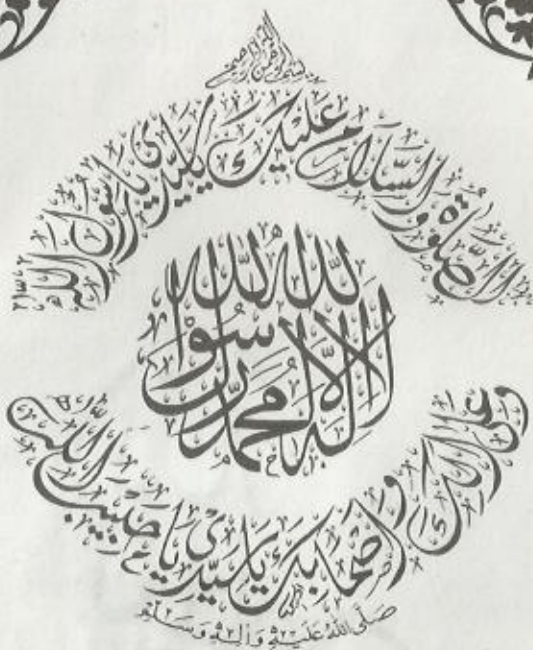 بسم الله الرحمن الرحيم
الصلوة والسلام عليك يا سيدي يا رسول الله
لا إله إلا الله محمد رسول الله
وعلى آلك وأصحابك يا سيدي يا حبيب الله
صلى الله عليه وآله وسلم